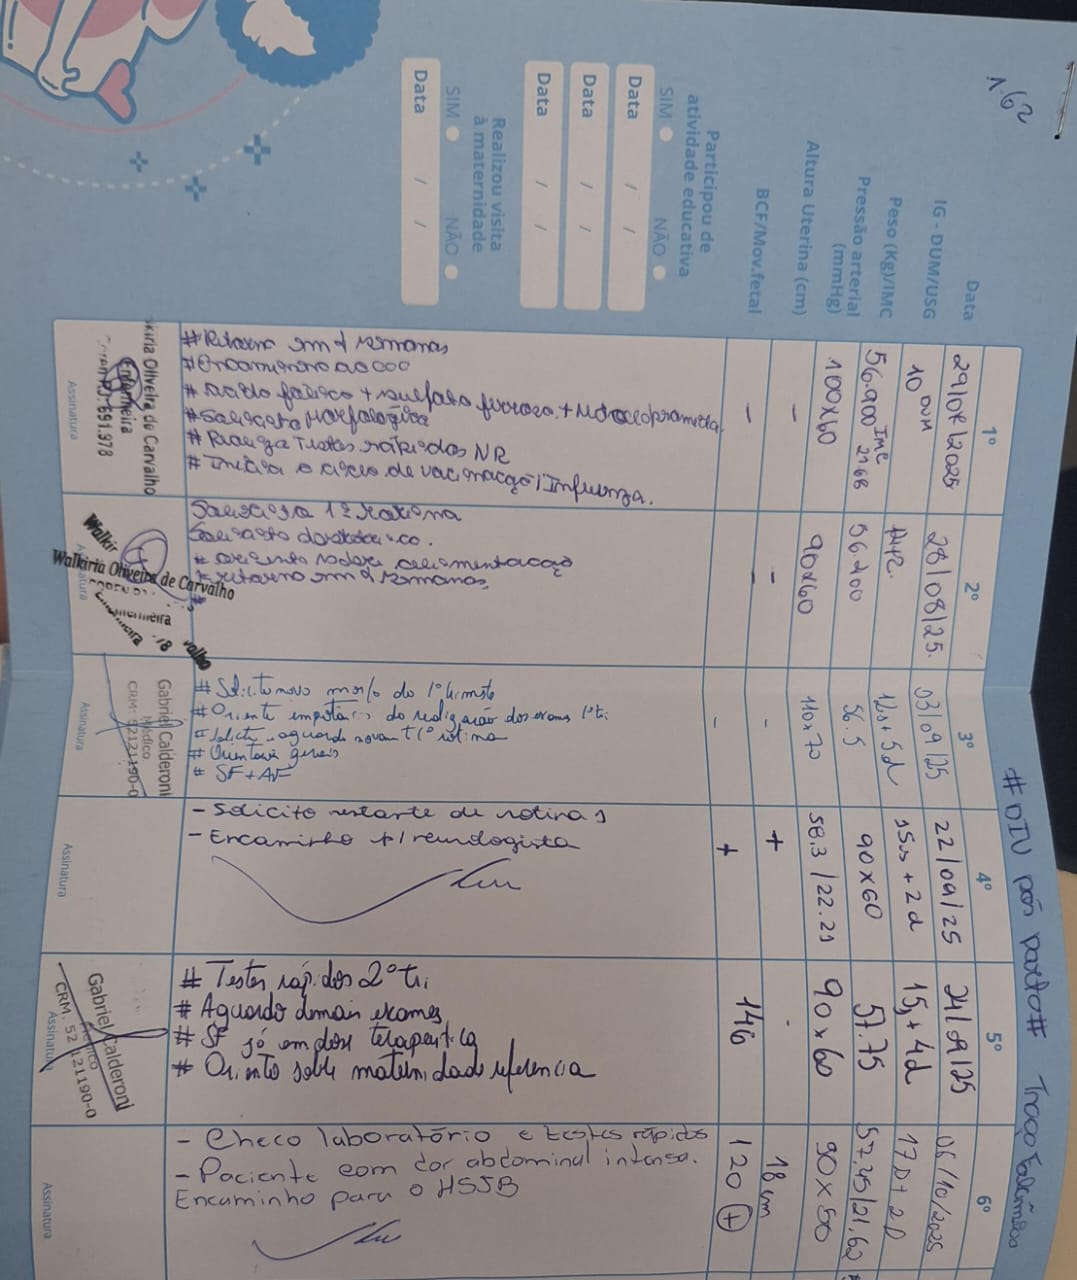 1.62
#DIU pós parto# Traço Falcêmico
Data
IG - DUM/USG
Peso (Kg)/IMC
Pressão arterial
(mmHg)
Altura Uterina (cm)
BCF/Mov.fetal
Participou de
atividade educativa
SIM NÃO
Data / /
Data / /
Data / /
Realizou visita
à maternidade
SIM NÃO
Data / /
1º
2025
10 DUM
56.900 IMC
100x60
-
-
#Retorno em semanas
#Encaminho ao
# ácido fólico + sulfato ferroso + Metoclopramida
#Solicito Morfológica
# Realizo Testes rápidos NR
# Inicia o de vacinação Influenza.
kiria Oliveira de Carvalho
Enfermeira
691.978
Assinatura
2º
28/08/25.
56.200
90x60
-
-
Solicito 1ª rotina
# oriento sobre alimentação
# retorno em semanas
Walkiria Oliveira de Carvalho
3º
03/09/25
12s+5d
56.5
110x70
-
-
# Solicito novo morfo do 1º trimestre
# Oriento importância da realização dos exames 1º tri
# aguardo rotina
# Orientações gerais
# SF + AF
Gabriel Calderoni
Médico
CRM: 52121190-0
Assinatura
4º
22/09/25
15s + 2d
90x60
58.3 / 22.21
+
+
- Solicito restante de rotina 1
- Encaminho p/ reumologista
Assinatura
5º
24/09/25
15s + 4d
57.75
90 x 60
-
146
# Testes rápidos 2º tri
# Aguardo demais exames
# SF já em dose terapeutica
# Oriento sobre maternidade referencia
Gabriel Calderoni
Médico
CRM. 52 121190-0
Assinatura
6º
06/10/2025
17s + 2d
57.25/21.62
90x50
18cm
120 +
- Checo laboratório e testes rápidos
- Paciente com dor abdominal intensa.
Encaminho para o HSJB
Assinatura